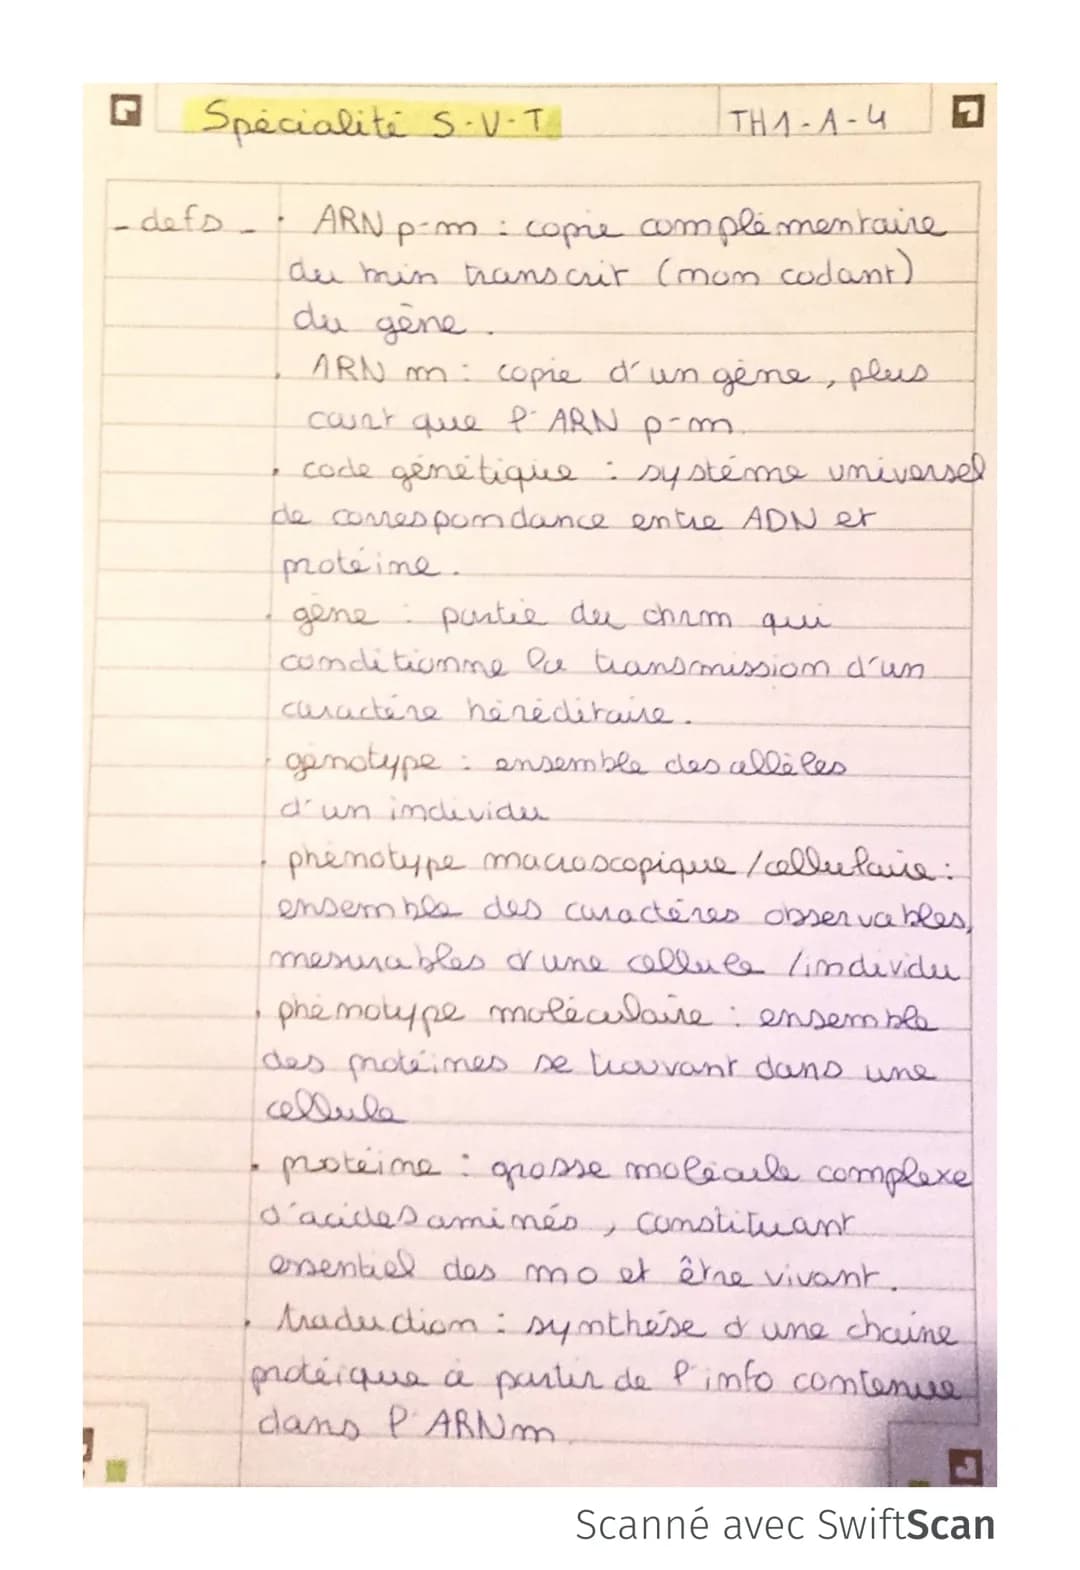 Spécialité S.V.T
TH1-A-4
- defs -
• ARN p-m : copie complémentaire
du brin transcrit (non codant)
du gène.
• ARN m : copie d'un gène, plus
court que l'ARN p-m.
• code génétique : système universel
de correspondance entre ADN et
protéine.
• gène : partie du chrom qui
conditionne la transmission d'un
caractère héréditaire.
• génotype : ensemble des allèles
d'un individu
• phénotype macroscopique / cellulaire :
ensemble des caractères observables,
mesurables d'une cellule / individu
• phénotype moléculaire : ensemble
des protéines se trouvant dans une
cellule
• protéine : grosse molécule complexe
d'acides aminés, constituant
essentiel des mo et être vivant.
• traduction : synthèse d'une chaine
protéique à partir de l'info contenue
dans l'ARNm
Scanné avec SwiftScan